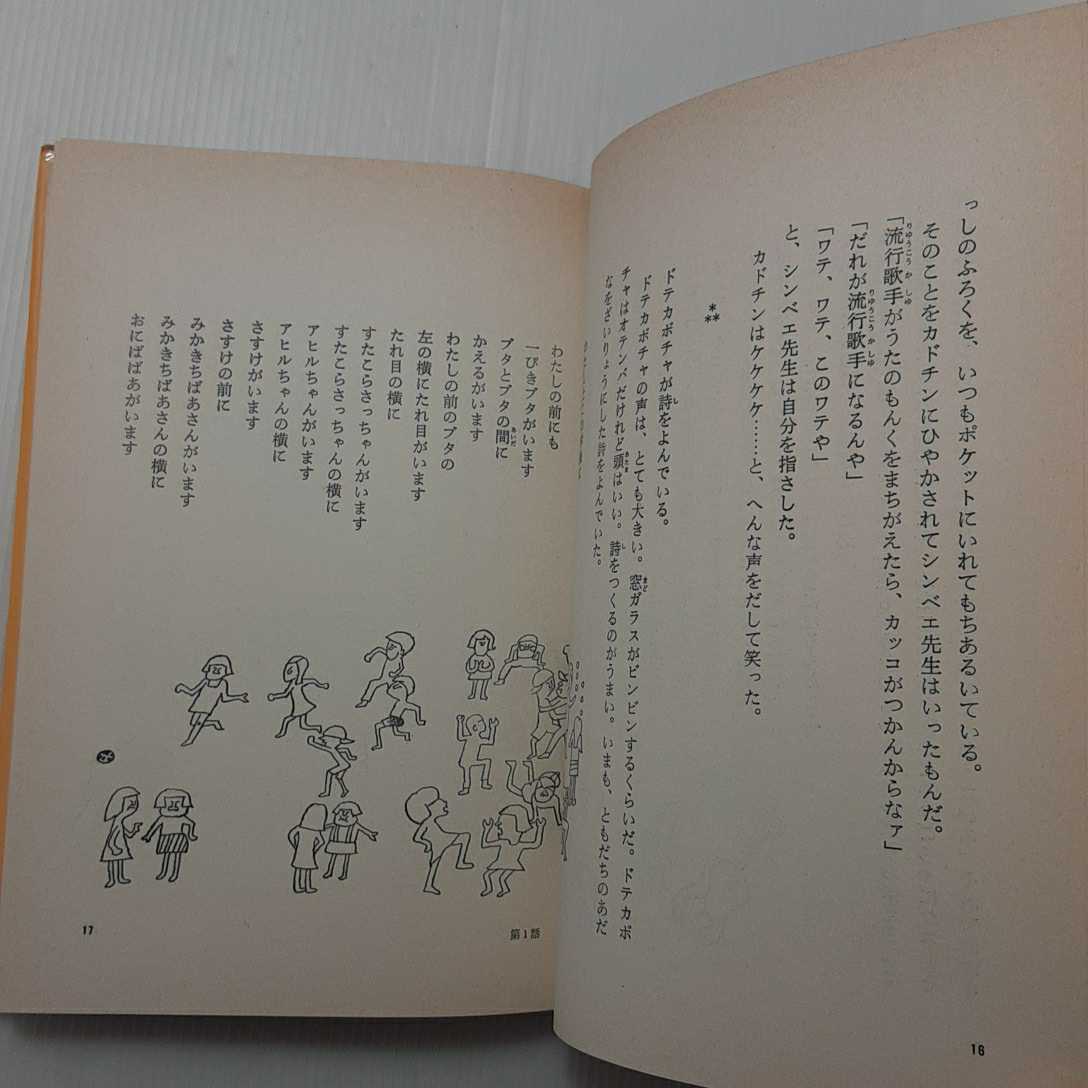 っしのふろくを、いつもポケットにいれてもちあるいている。
そのことをカドチンにひやかされてシンベエ先生はいったもんだ。
「流行歌手がうたのもんくをまちがえたら、カッコがつかんからなァ」
「だれが流行歌手になるんや」
「ワテ、ワテ、このワテや」
と、シンベエ先生は自分を指さした。
カドチンはケケケケ……と、へんな声をだして笑った。
***
ドテカボチャが詩をよんでいる。
ドテカボチャの声は、とても大きい。窓ガラスがビンビンするくらいだ。ドテカボ
チャはオテンバだけれど頭はいい。詩をつくるのがうまい。いまも、ともだちのあだ
なをざいりょうにした詩をよんでいた。
16
わたしの前にも
一ぴきブタがいます
ブタとブタの間に
かえるがいます
わたしの前のブタの
左の横にたれ目がいます
たれ目の横に
すたこらさっちゃんがいます
すたこらさっちゃんの横に
アヒルちゃんがいます
アヒルちゃんの横に
さすけがいます
さすけの前に
みかきちばあさんがいます
みかきちばあさんの横に
おにばばあがいます
第1話
17